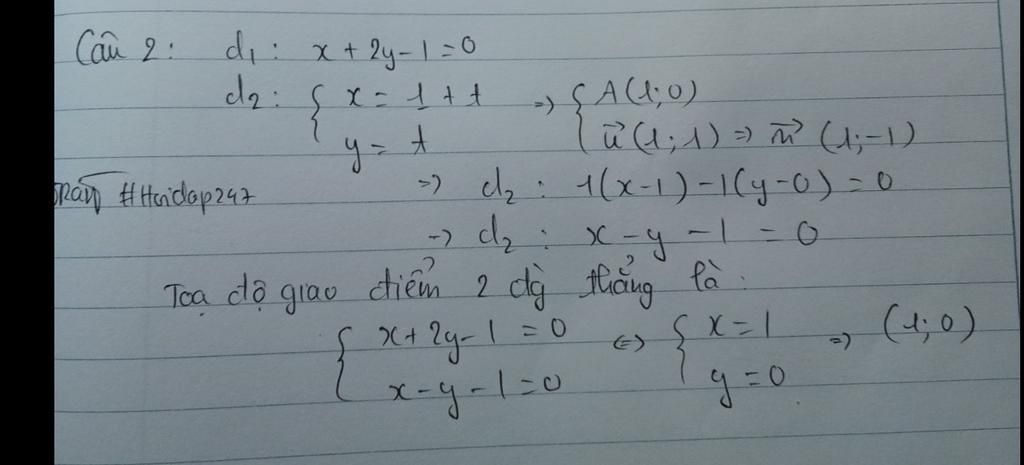 Câu 2: d₁: x + 2y - 1 = 0
d₂: { x = 1 + t => { A(1; 0)
y = t u⃗(1; 1) => n⃗ (1; -1)
#Hoidap247 => d₂: 1(x-1) - 1(y-0) = 0
-> d₂: x - y - 1 = 0
Toạ độ giao điểm 2 đg̀ thẳng là:
{ x + 2y - 1 = 0 <=> { x = 1 => (1; 0)
x - y - 1 = 0 y = 0